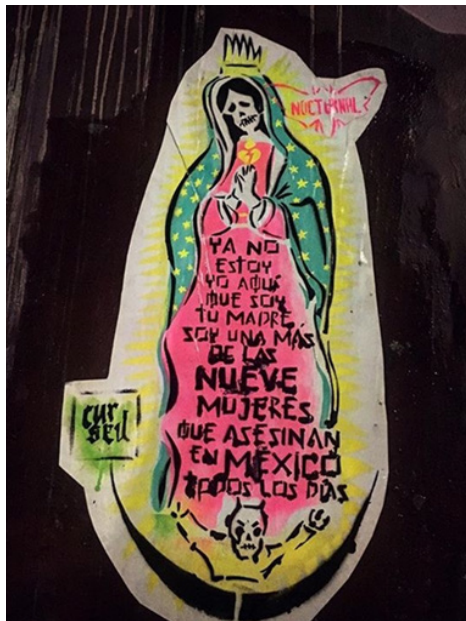 NOCTURNAL
YA NO
ESTOY
YO AQUÍ
QUE SOY
TU MADRE
SOY UNA MÁS
DE LAS
NUEVE
MUJERES
QUE ASESINAN
EN MÉXICO
TODOS LOS DÍAS